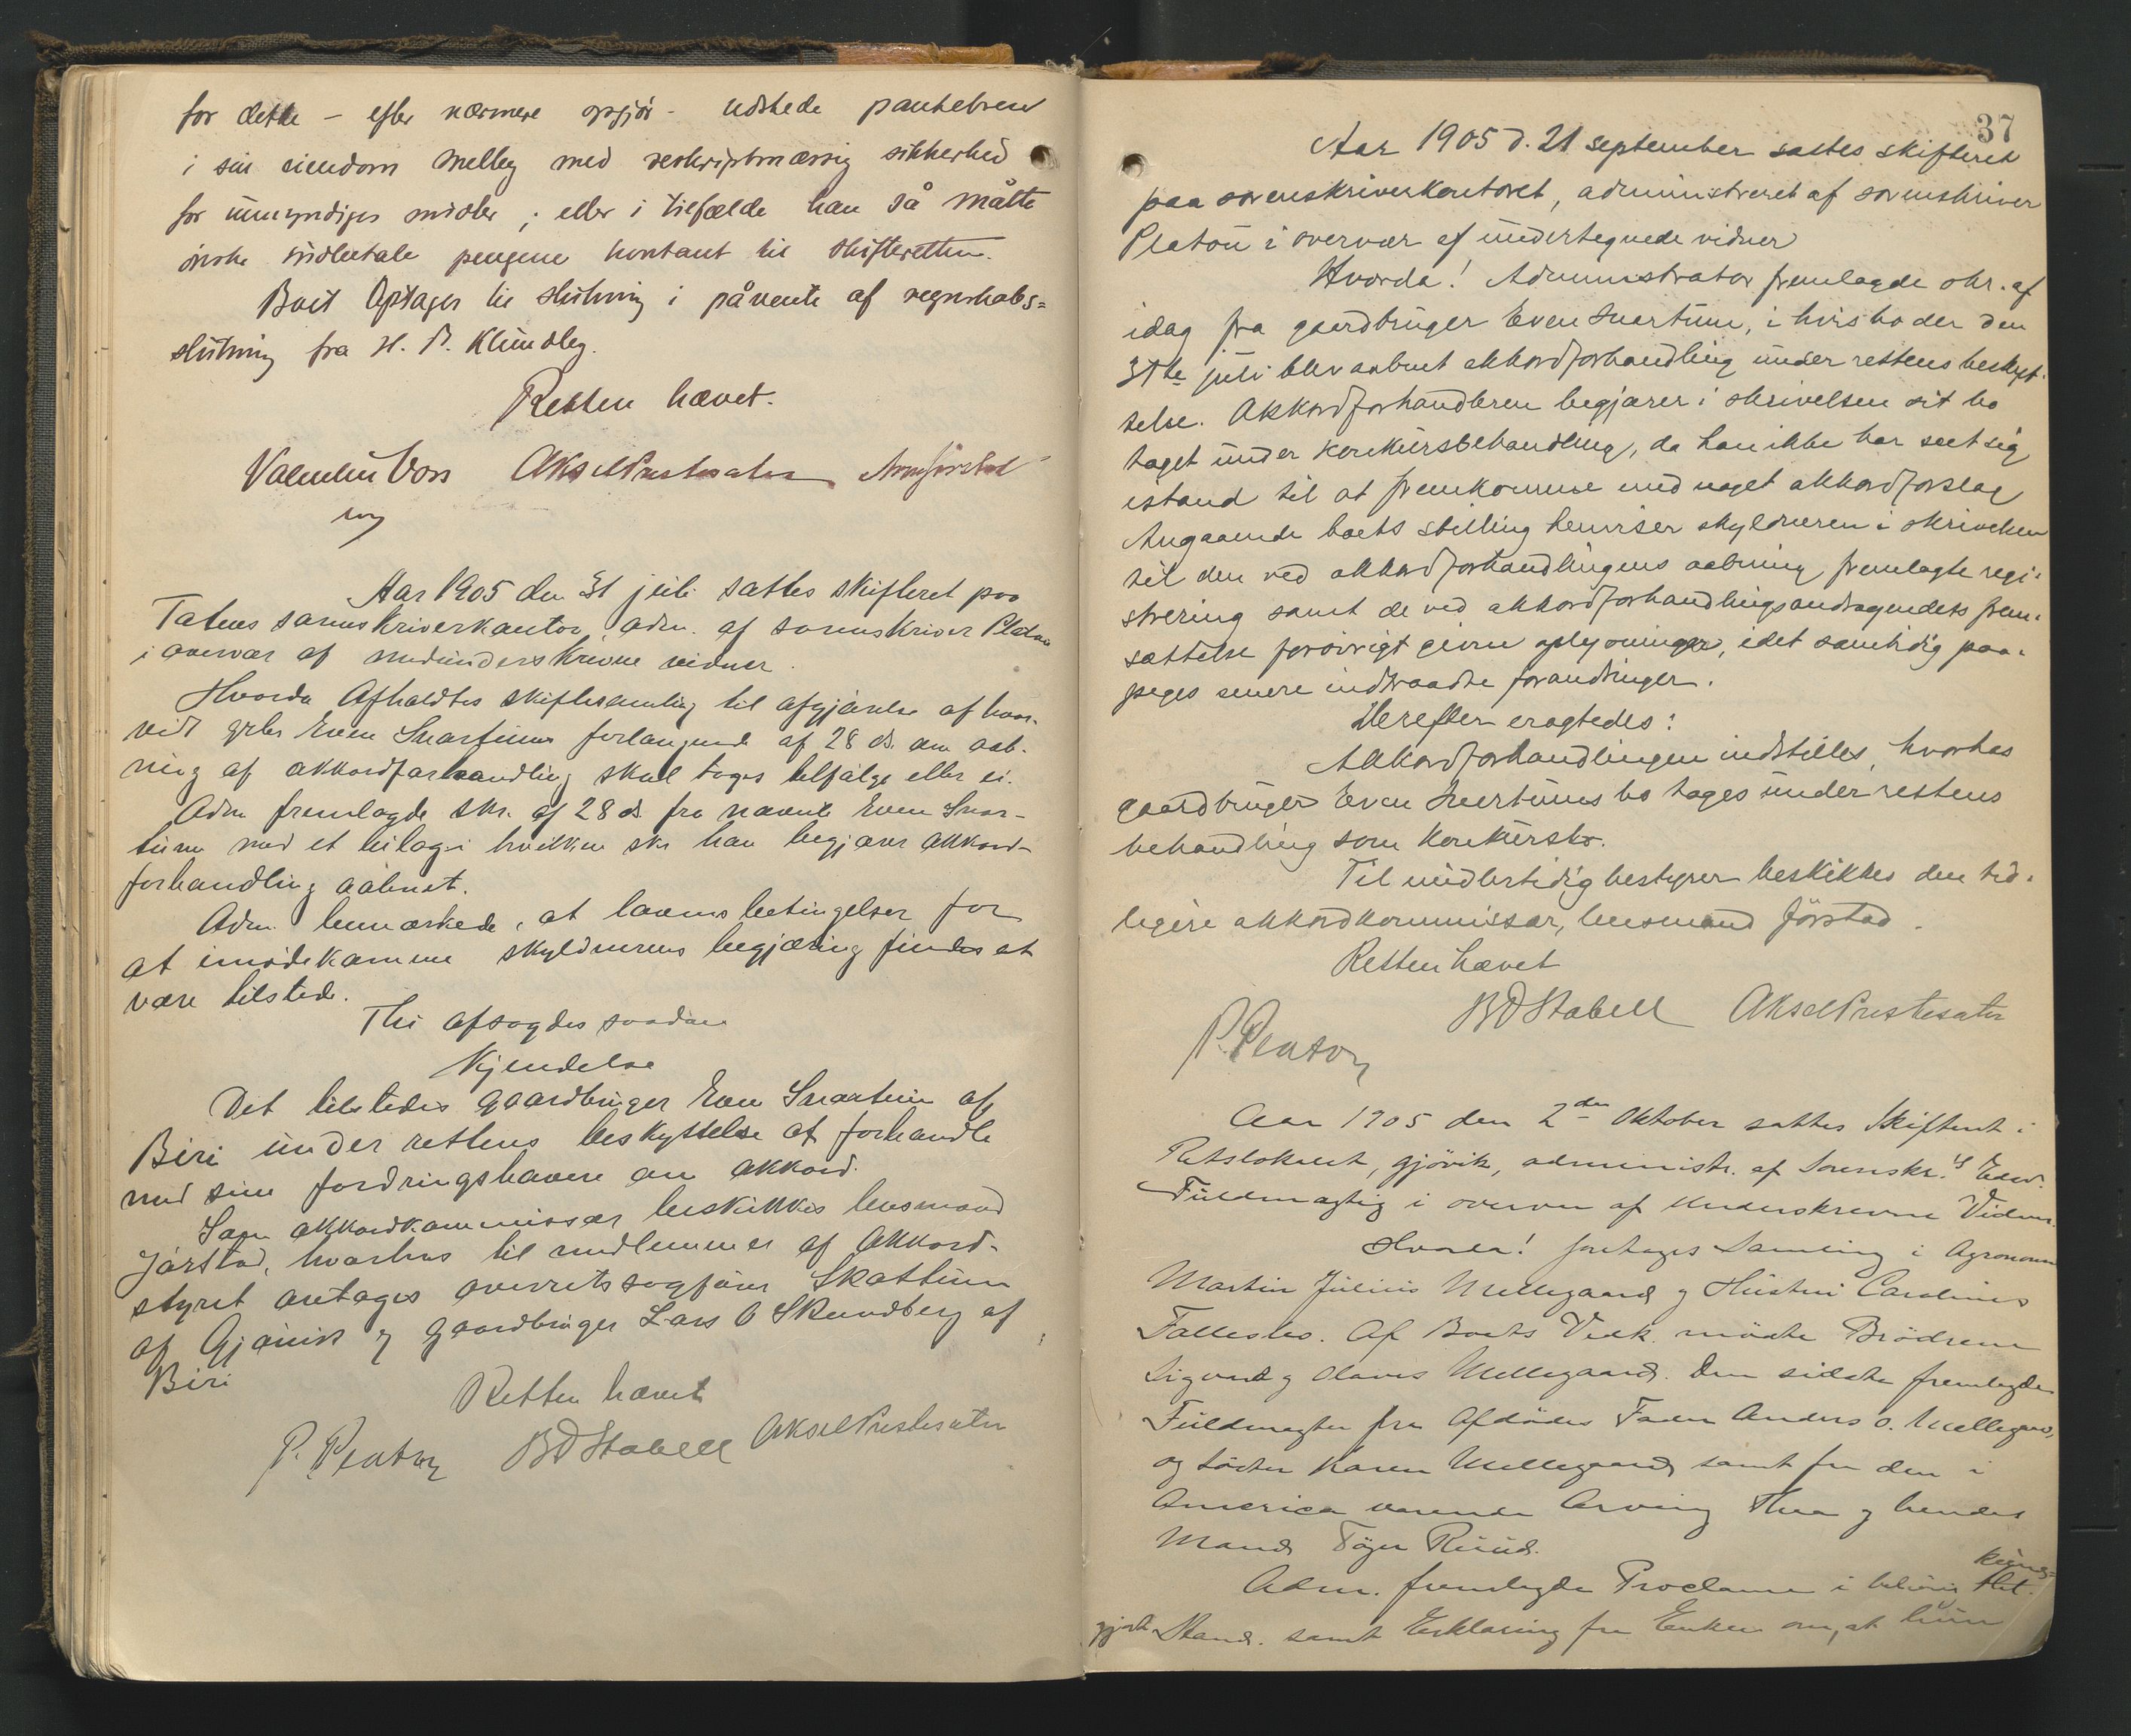 for dette – efter nærmere opgjör – udstede pantebrev
i sin eiendom Melby med reskriptmæssig sikkerhed
for umyndiges midler, eller i tilfælde han så måtte
önske indbetale pengene kontant til skifteretten.
Boet Optages til slutning i påvente af regnskabs=
slutning fra H. P. Klundby.
Retten hævet.
Valentin Voss Aksel Prestesater
Aar 1905 den 31 juli sattes skifteret paa
Totens sorenskriverkontor, adm. af sorenskriver Platou
i overvær af medunderskrevne vidner.
Hvorda Afholdtes skiftesamling til afgjörelse af hvor-
vidt grbr. Even Snartums forlangende af 28 ds. om aab-
ning af akkordforhandling skal tages tilfölge eller ei.
Adm fremlagde skr. af 28 ds. fra nævnte Even Snar-
tum med et bilag i hvilken skr han begjærer akkord-
forhandling aabnet.
Adm. bemærkede, at lovens betingelser for
at imödekomme skyldnerens begjæring findes at
være tilstede.
Thi afsagdes saadan
Kjendelse
Det tilstedes gaardbruger Even Snartum af
Biri under rettens beskyttelse at forhandle
med sine fordringshavere om akkord.
Som akkordkommissær beskikkes lensmand
Jörstad, hvorhos til medlemmer af akkord-
styret antages overretssagförer Skattum
af Gjövik og gaardbruger Lars O Skundberg af
Biri
Retten hævet
P. Platou BD Stabell Aksel Prestesater
37
Aar 1905 d. 21 september sattes skifteret
paa sorenskriverkontoret, administreret af sorenskriver
Platou i overvær af undertegnede vidner
Hvorda! Administrator fremlagde skr. af
idag fra gaardbruger Even Snartum, i hvis bo der den
31te juli blev aabnet akkordforhandling under rettens beskyt-
telse. Akkordforhandleren begjærer i skrivelsen sit bo
taget under konkursbehandling, da han ikke har seet sig
istand til at fremkomme med noget akkordforslag
Angaaende boets stilling henviser skyldneren i skrivelsen
til den ved akkordforhandlingens aabning fremlagte regi-
strering samt de ved akkordforhandlingsandragendets frem-
sættelse forövrigt givne oplysninger, idet samtidig paa-
peges senere indtraadte forandringer.
Derefter eragtedes:
Akkordforhandlingen indstilles, hvorhos
gaardbruger Even Snartums bo tages under rettens
behandling som konkursbo.
Til midlertidig bestyrer beskikkes den tid-
ligere akkordkommissær, lensmand Jörstad.
Retten hævet
P. Platou BD Stabell Aksel Prestesater
Aar 1905 den 2den Oktober sattes Skifteret i
Retslokalet, Gjövik, administr. af Sorenskr.s Edsv.
Fuldmægtig i overvær af underskrevne Vidner.
Hvorda! foretoges Samling i Agronom
Martin Julius Mellegaard og Hustru Carolines
Fællesbo. Af Boets Vedk. mödte Brödrene
Sigvard og Olaves Mellegaard. Den sidste fremlagde
Fuldmagter fra Afdödes Fader Anders O. Mellegaard,
og Söster Karen Mellegaard samt fra den i
America værende Arving Thea og hendes
Mand Töger Ruud.
Adm. fremlagde Proclama i behörig kund-
gjort Stand. samt Erklæring fra Enken om, at hun